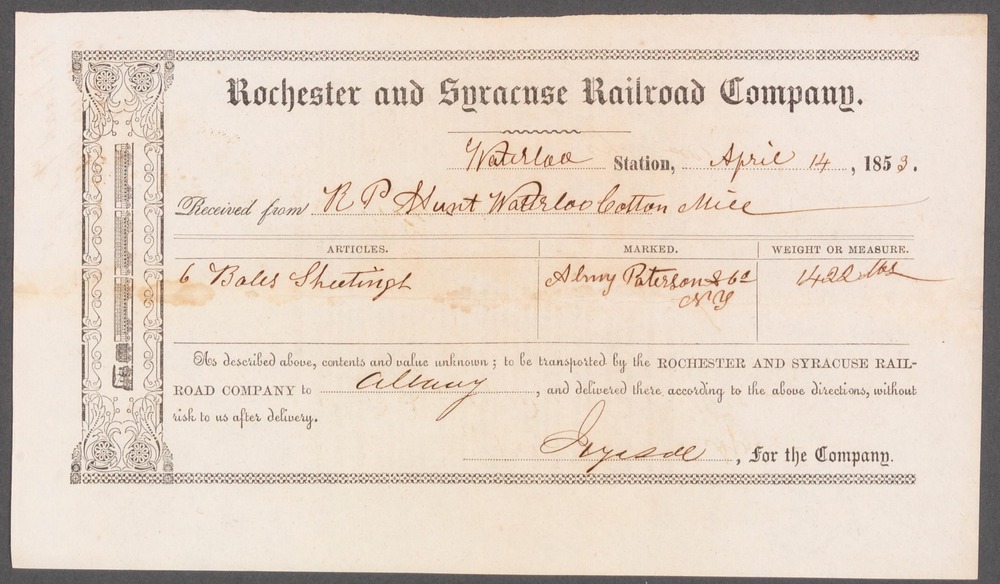 Rochester and Syracuse Railroad Company.
Waterloo Station, April 14, 1853.
Received from R P Hunt Waterloo Cotton Mill
ARTICLES. MARKED. WEIGHT OR MEASURE.
6 Bales Sheetings Almy Paterson & Co 1422 lbs
N Y
As described above, contents and value unknown; to be transported by the ROCHESTER AND SYRACUSE RAIL-
ROAD COMPANY to Albany, and delivered there according to the above directions, without
risk to us after delivery.
, For the Company.